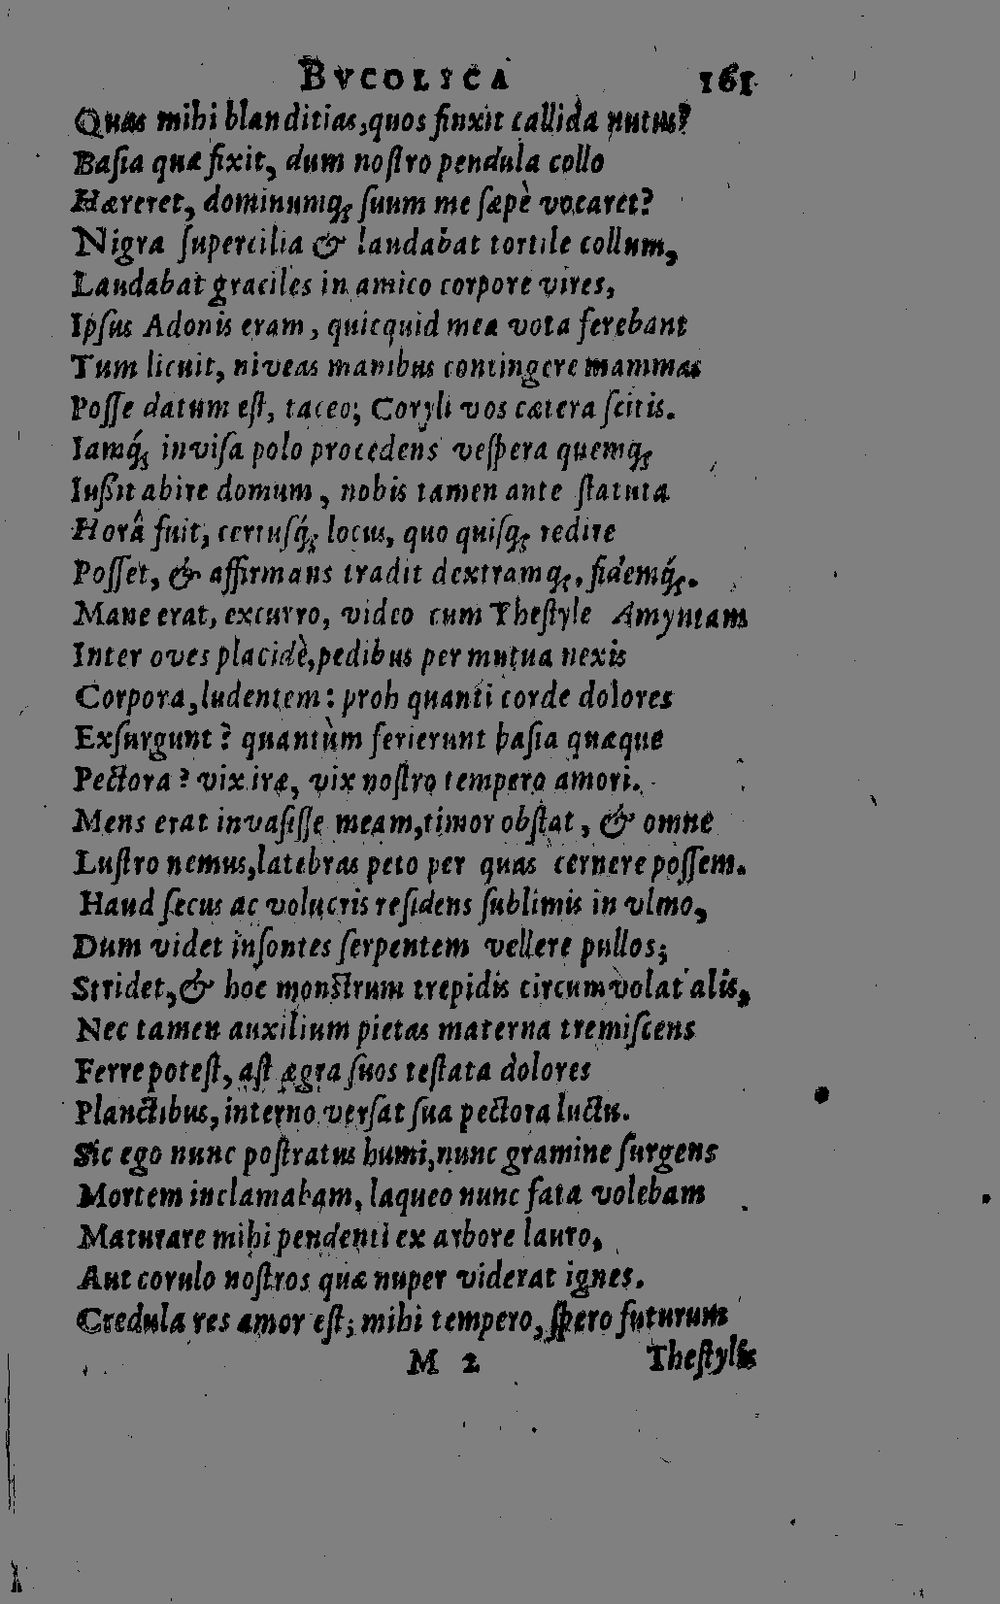 BVCOLICA 161
Quas mihi blanditias, quos finxit callida nutus?
Basia quæ fixit, dum nostro pendula collo
Hæreret, dominumq; suum me sæpè vocaret?
Nigra supercilia & laudabat tortile collum,
Laudabat graciles in amico corpore vires,
Ipsus Adonis eram, quicquid mea vota ferebant
Tum licuit, niveas manibus contingere mammas
Posse datum est, taceo; Coryli vos cætera scitis.
Iamq́; invisa polo procedens vespera quemq;
Iussit abire domum, nobis tamen ante statuta
Horâ fuit, certusq́; locus, quo quisq; redire
Posset, & affirmans tradit dextramq;, fidemq́;.
Mane erat, excurro, video cum Thestyle Amyntam
Inter oves placidè, pedibus per mutua nexis
Corpora, ludentem: proh quanti corde dolores
Exsurgunt? quantùm ferierunt basia quæque
Pectora? vix iræ, vix nostro tempero amori.
Mens erat invasisse meam, timor obstat, & omne
Lustro nemus, latebras peto per quas cernere possem.
Haud secus ac volucris residens sublimis in ulmo,
Dum videt insontes serpentem vellere pullos;
Stridet, & hoc monstrum trepidis circumvolat alis,
Nec tamen auxilium pietas materna tremiscens
Ferre potest, ast ægra suos testata dolores
Planctibus, interno versat sua pectora luctu.
Sic ego nunc postratus humi, nunc gramine surgens
Mortem inclamabam, laqueo nunc fata volebam
Maturare mihi pendenti ex arbore lauro,
Aut corulo nostros quæ nuper viderat ignes.
Credula res amor est; mihi tempero, spero futurum
M 2 Thestylis